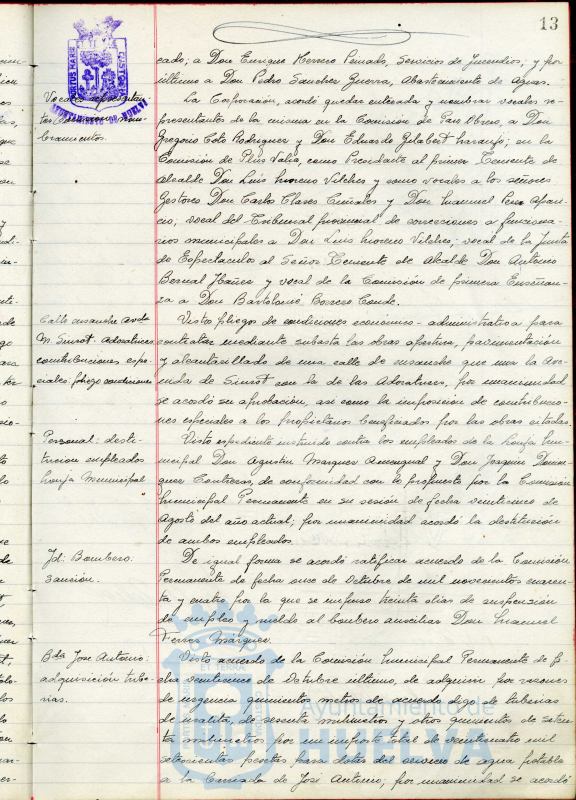 13
cado; a Don Enrique Herrero Penado, Servicios de Incendios; y por
último a Don Pedro Sanchez Guerra, Abastecimiento de Aguas.
Vocales representan-
tes
bramientos.
AYUNTAMIENTO DE HUELVA
La Corporación, acordó quedar enterada y nombrar vocales re-
presentantes de la misma en la Comisión de Paro Obrero, a Don
Gregorio Coto Rodriguez y Don Eduardo Gelabert Naranjo; en la
Comisión de Plus Valia, como Presidente al primer Teniente de
Alcalde Don Luis Moreno Vilches y como vocales a los señores
Gestores Don Carlos Claves Criviales y Don Manuel Pérez Apari-
cio; vocal del Tribunal de concesiones a funciona-
rios municipales a Don Luis Moreno Vilches; vocal de la Junta
de Espectaculos al Señor Teniente de Alcalde Don Antonio
Bernal Ibáñez y vocal de la Comisión de primera Enseñan-
za a Don Bartolomé Borrero Conde.
Calle ensanche Avda
M. Sinrot Adoratrices
contribuciones espe-
ciales. pliego condiciones
Visto pliego de condiciones economico-administrativa para
contratar mediante subasta las obras apertura, pavimentación
y alcantarillado de una calle de ensanche que une la Ave-
nida de Sinrot con la de las Adoratrices, por unanimidad
se acordó su aprobación, así como la imposición de contribucio-
nes especiales a los propietarios beneficiados por las obras citadas.
Personal: desti-
tucion empleados
Lonja Municipal
Visto expediente instruido contra los empleados de la Lonja Mu-
nicipal Don Agustin Marquez Amengual y Don Joaquin Domin-
guez Contreras, de conformidad con lo propuesto por la Comisión
Municipal Permanente en su sesión de fecha veinticinco de
Agosto del año actual; por unanimidad acordó la destitución
de ambos empleados.
Id: Bombero.
Sanción.
De igual forma se acordó ratificar acuerdo de la Comisión
Permanente de fecha once de Octubre de mil novecientos cuaren-
ta y cuatro por la que se impuso treinta dias de suspensión
de empleo y sueldo al bombero auxiliar Don Manuel
Márquez.
Bda Jose Antonio:
adquisición tube-
rias.
Visto acuerdo de la Comisión Municipal Permanente de fe-
cha veinticinco de Octubre último, de adquirir por razones
de urgencia quinientos metros de acuerdo digo de tuberias
de uralita, de sesenta milimetros y otros quinientos de seten-
ta milimetros por un importe total de veinticuatro mil
setecientas pesetas para dotar del servicio de agua potable
a la Barriada de José Antonio; por unanimidad se acordó
Ayuntamiento de
HUELVA